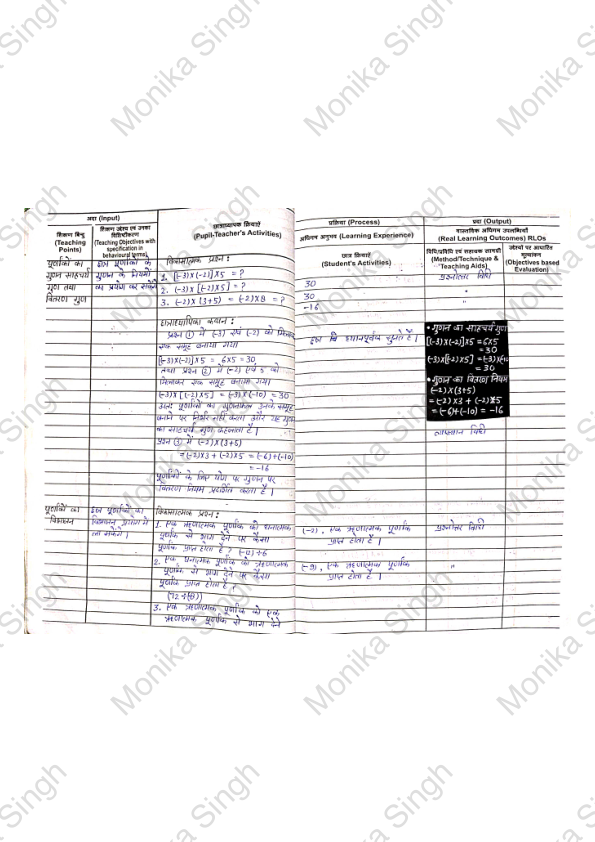 Monika Singh
अदा (Input)
प्रक्रिया (Process)
प्रदा (Output)
शिक्षण बिन्दु (Teaching Points)
शिक्षण उद्देश्य एवं उनका विशिष्टीकरण (Teaching Objectives with specification in behavioural terms)
छात्राध्यापक क्रियाएँ (Pupil-Teacher's Activities)
अधिगम अनुभव (Learning Experience)
छात्र क्रियाएँ (Student's Activities)
वास्तविक अधिगम उपलब्धियाँ (Real Learning Outcomes) RLOs
विधि/प्रविधि एवं सहायक सामग्री (Method/Technique & Teaching Aids)
उद्देश्यों पर आधारित मूल्यांकन (Objectives based Evaluation)
पूर्णांकों का
गुणन साहचर्य
गुण तथा
वितरण गुण
छात्र पूर्णांकों के
गुणन के नियमों
का प्रयोग कर सकेंगे
विकासात्मक प्रश्न :
1. [(-3)×(-2)]×5 = ?
2. (-3)×[(-2)×5] = ?
3. (-2)×(3+5) = (-2)×8 = ?
30
30
-16
प्रश्नोत्तर विधि
"
"
छात्राध्यापिका कथन :
प्रश्न (1) में (-3) एवं (-2) को मिलाकर
एक समूह बनाया गया
[(-3)×(-2)]×5 = 6×5 = 30
तथा प्रश्न (2) में (-2) एवं 5 को
मिलाकर एक समूह बनाया गया।
(-3)×[(-2)×5] = (-3)×(-10) = 30
अतः पूर्णांकों का गुणनफल उनके समूह
बनाने पर निर्भर नहीं करता और यह गुण
का साहचर्य गुण कहलाता है।
प्रश्न (3) में (-2)×(3+5)
= (-2)×3 + (-2)×5 = (-6)+(-10)
= -16
पूर्णांकों के लिए योग पर गुणन पर
वितरण नियम प्रदर्शित करता है।
छात्र ध्यानपूर्वक सुनते हैं।
• गुणन का साहचर्य गुण
[(-3)×(-2)]×5 = 6×5
= 30
(-3)×[(-2)×5] = (-3)×(-10)
= 30
• गुणन का वितरण नियम
(-2)×(3+5)
= (-2)×3 + (-2)×5
= (-6)+(-10) = -16
व्याख्यान विधि
पूर्णांकों का
विभाजन
छात्र पूर्णांकों का
विभाजन
विकासात्मक प्रश्न :
1. एक ऋणात्मक पूर्णांक को धनात्मक
पूर्णांक से भाग देने पर कैसा
पूर्णांक प्राप्त होता है ?
2. एक धनात्मक पूर्णांक को ऋणात्मक
पूर्णांक से भाग देने पर कैसा
पूर्णांक प्राप्त होता है ?
3. एक ऋणात्मक पूर्णांक को एक
ऋणात्मक पूर्णांक से भाग देने
(-2), एक ऋणात्मक पूर्णांक
प्राप्त होता है।
(-9), एक ऋणात्मक पूर्णांक
प्राप्त होता है।
प्रश्नोत्तर विधि
"